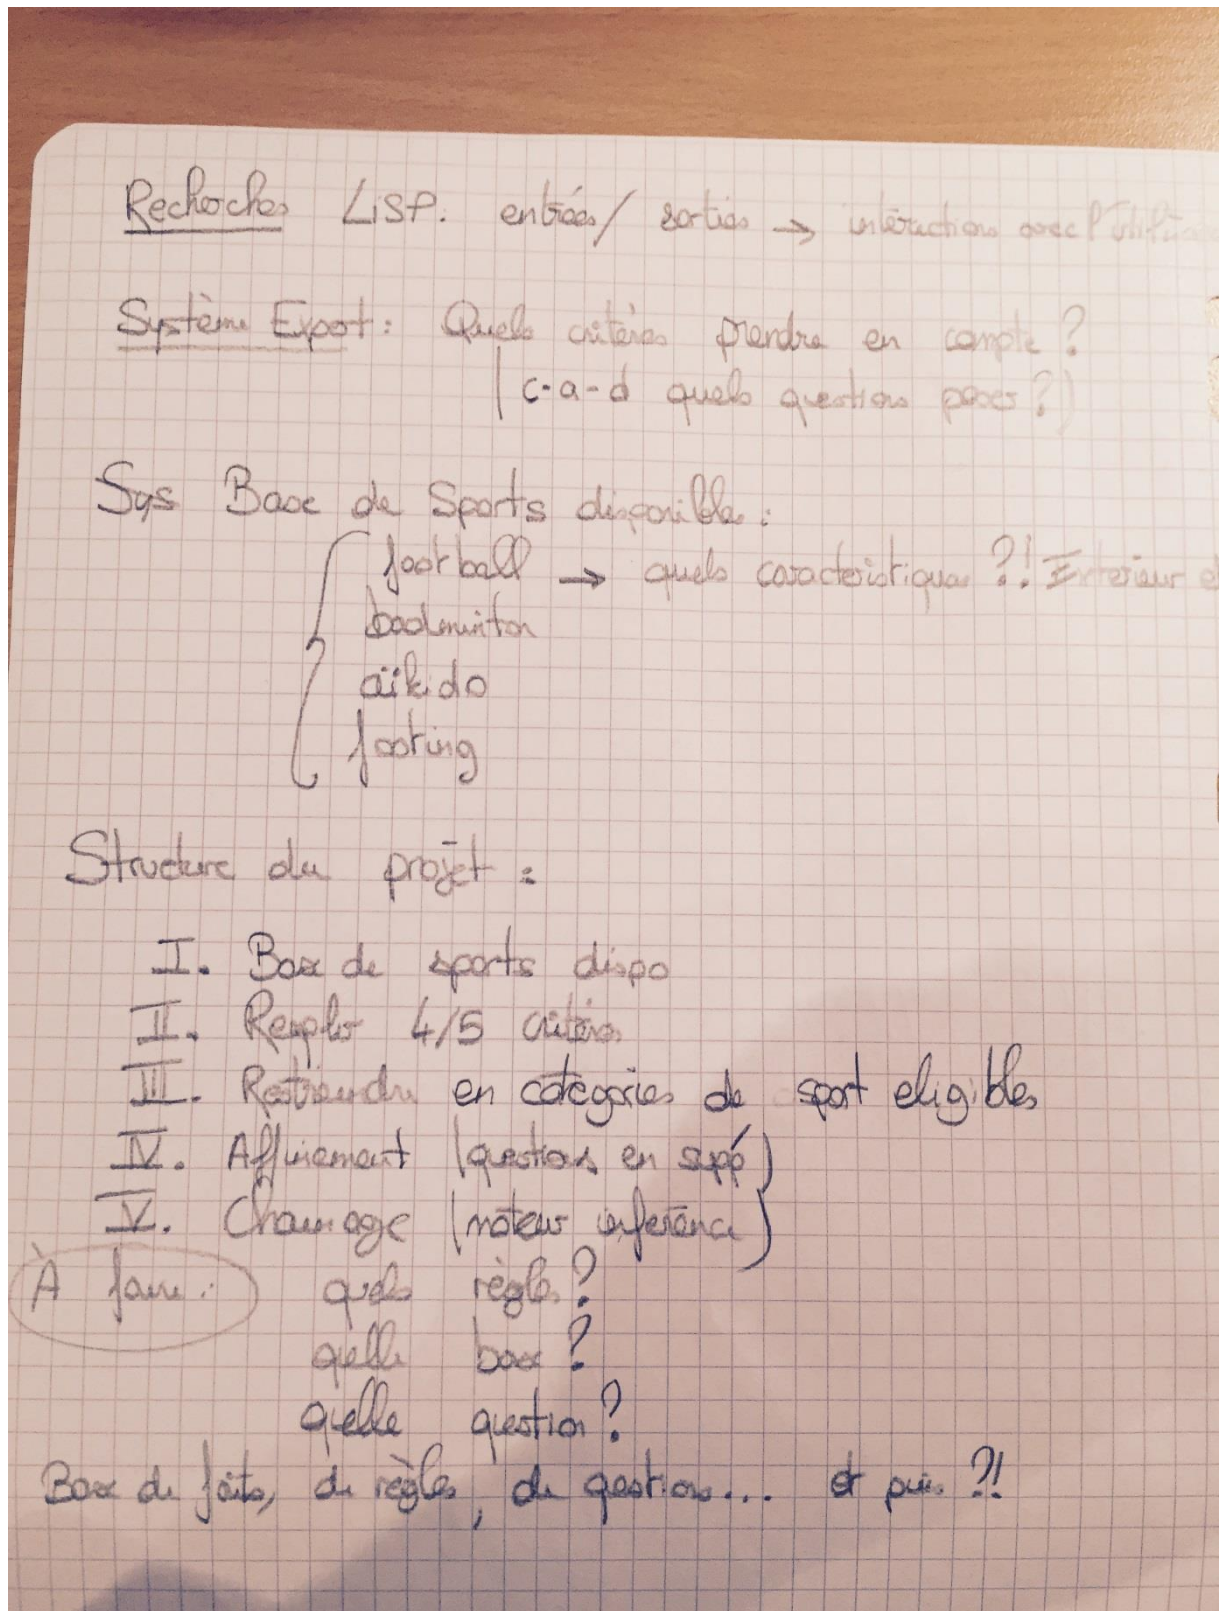 Recherches LISP : entrées / sorties → intéractions avec l'utilisa
Système Expert : Quels critères prendre en compte ?
(c-a-d quels questions poser ?)
Sys Base de Sports disponibles :
football → quels caractéristiques ?! Extérieur
badminton
aïkido
footing
Structure du projet :
I. Base de sports dispo
II. Remplir 4/5 critères
III. Restreindre en catégories de sport eligibles
IV. Affinement (questions en supp)
V. Chainage (moteur inférence)
À faire : quels règles ?
quelle base ?
quelle question ?
Base de faits, de règles, de questions... et puis ?!